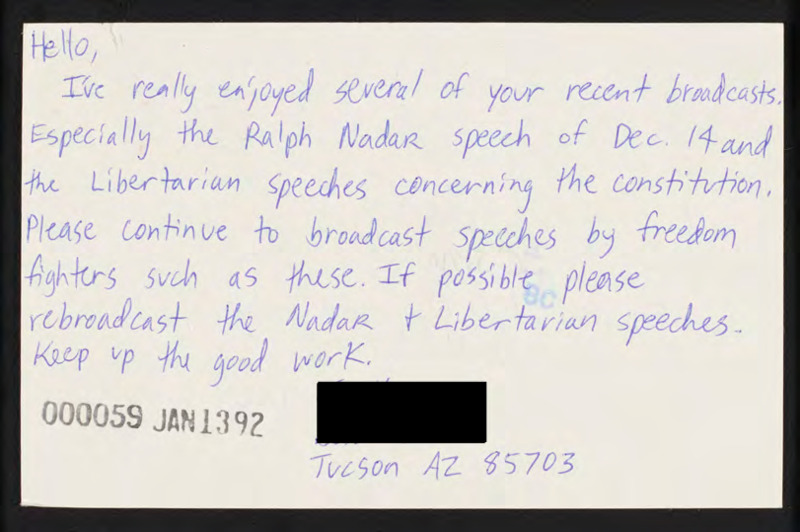 Hello,
I've really enjoyed several of your recent broadcasts.
Especially the Ralph Nadar speech of Dec. 14 and
the Libertarian speeches concerning the constitution.
Please continue to broadcast speeches by freedom
fighters such as these. If possible please
rebroadcast the Nadar + Libertarian speeches.
Keep up the good work.
000059 JAN 13 92
Tucson AZ 85703